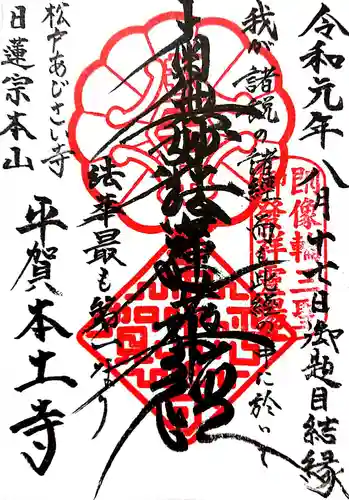 令和元年八月十七日御題目結縁
我が諸説の諸経而も此経の中に於いて
南無妙法蓮華経
法華最も第一なり
松戸あじさい寺
日蓮宗本山
平賀本土寺